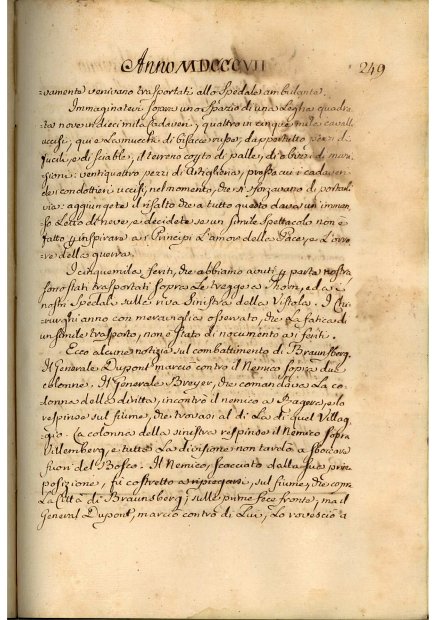 Anno MDCCCVII
249
=vamente venivano trasportati allo Spedale ambulante.
Immaginatevi sovra uno Spazio di una Legha quadra
=ta nove in diecimila Cadaveri, quattro in cinque mila cavalli
uccisi, qui e La mucchi di bisacce russe, da pertutto pezzi di
fucili, e di sciable, il terreno coperto di palle, di obuzi, di muni=
zioni: ventiquattro pezzi di Artiglieria, presso cui i cadaveri
de' condottieri uccisi, nel momento, che si sforzavano di portarli
via: aggiungete il risalto che a tutto questo dava un immen=
so Letto di neve, e decidete se un simile Spettacolo non è
fatto per inspirare ai Principi L'amor della Pace, e L'orro=
re della guerra.
I cinquemila feriti, che abbiamo avuti per parte nostra
sono stati trasportati sopra Le tregge a Thorn, ed a i
nostri Spedali sulla riva Sinistra della Vistola. I Chi=
rurghi anno con meraviglia osservato, che La fatica di
un simile trasporto, non è stato di nocumento ai feriti.
Ecco alcune notizie sul combattimento di Braunsberg.
Il Generale Dupont marciò contro il Nemico sopra due
colonne. Il Generale Breyer, che comandava La co=
lonna della diritta, incontrò il nemico a Ragern, e lo
respinse sul fiume, che trovasi al di La di quel Villag=
gio. La colonna della sinistra respinse il Nemico sopra
Villemberg, e tutta La divisione non tardò a sboccare
fuori del Bosco. Il Nemico, scacciato dalla sua prima
posizione, fù costretto a ripiegarsi, sul fiume, che copre
La Città di Braunsberg; sulle prime fece fronte, ma il
General Dupont, marciò contro di Lui, Lo rovesciò a